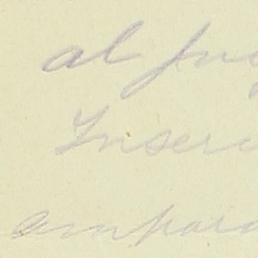 al Jug
Inser
ampara